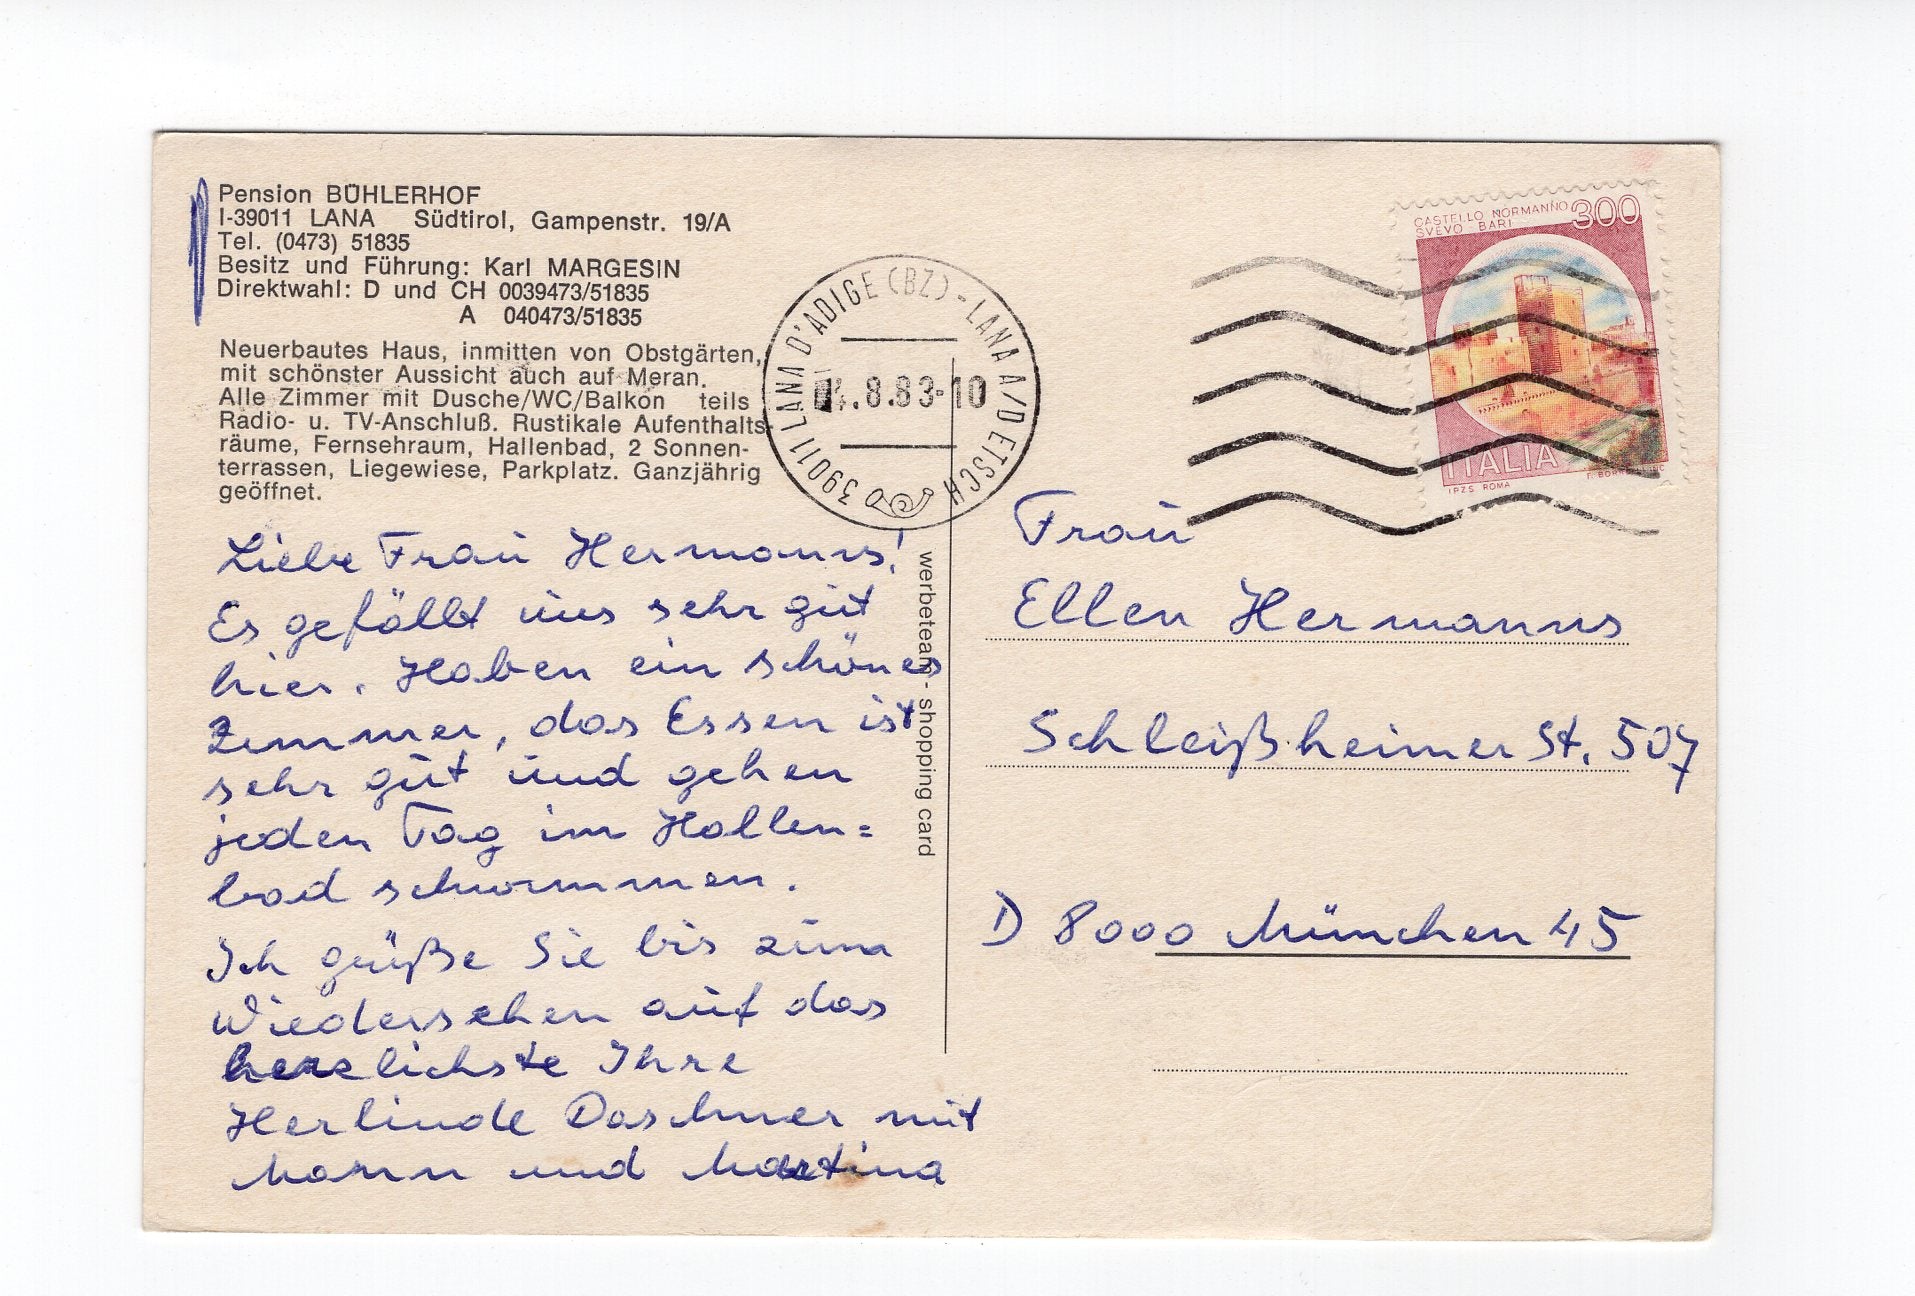 Pension BÜHLERHOF
I-39011 LANA Südtirol, Gampenstr. 19/A
Tel. (0473) 51835
Besitz und Führung: Karl MARGESIN
Direktwahl: D und CH 0039473/51835
A 040473/51835
Neuerbautes Haus, inmitten von Obstgärten,
mit schönster Aussicht auch auf Meran.
Alle Zimmer mit Dusche/WC/Balkon teils
Radio- u. TV-Anschluß. Rustikale Aufenthalts-
räume, Fernsehraum, Hallenbad, 2 Sonnen-
terrassen, Liegewiese, Parkplatz. Ganzjährig
geöffnet.
Liebe Frau Hermanns!
Es gefällt uns sehr gut
hier. Haben ein schönes
Zimmer, das Essen ist
sehr gut und gehen
jeden Tag im Hallen=
bad schwimmen.
Ich grüße Sie bis zum
Wiedersehen auf das
herzlichste Ihre
Herlinde Daschner mit
Mann und Martina
werbeteam - shopping card
39011 LANA D'ADIGE (BZ) - LANA A/D ETSCH
4.8.83-10
CASTELLO NORMANNO
SVEVO - BARI
300
ITALIA
I.P.Z.S. ROMA
Frau
Ellen Hermanns
Schleißheimer St. 507
D 8000 München 45